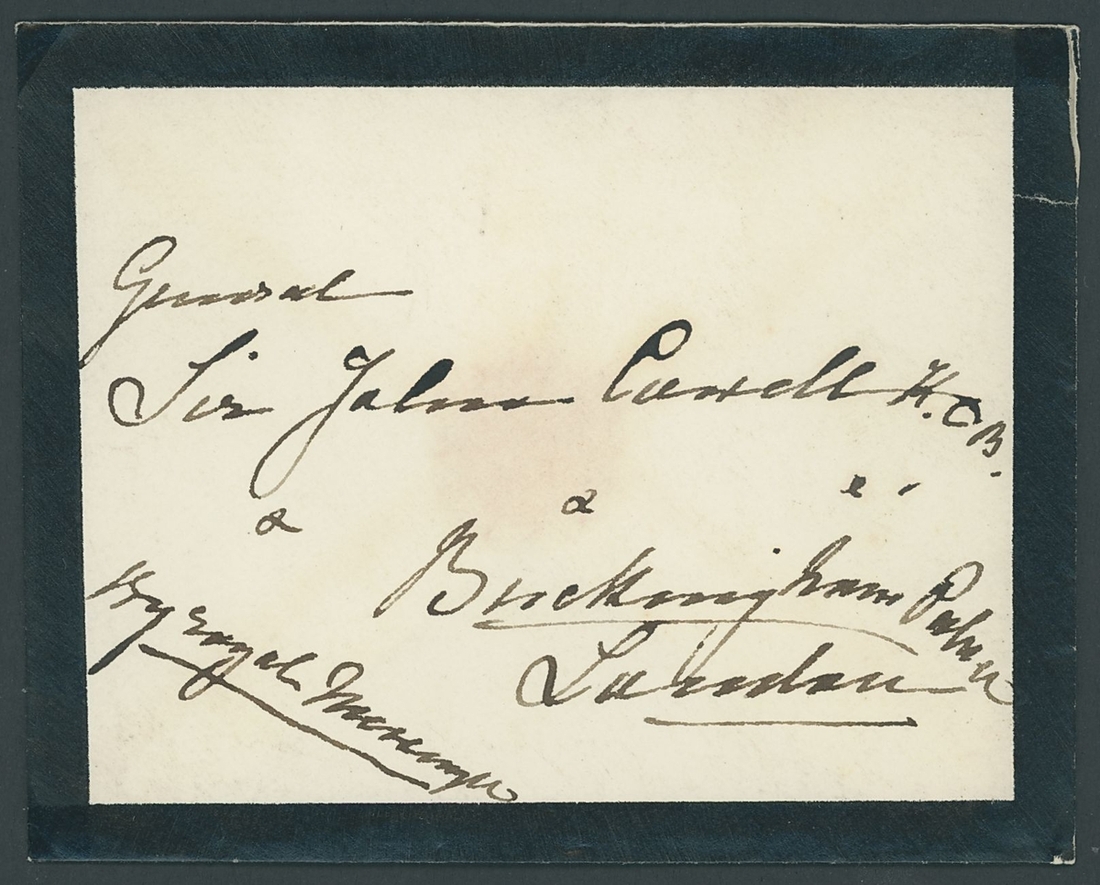 General
Sir John Cowell K.C.B.
a a e
Buckingham Palace
London
By royal Messenger